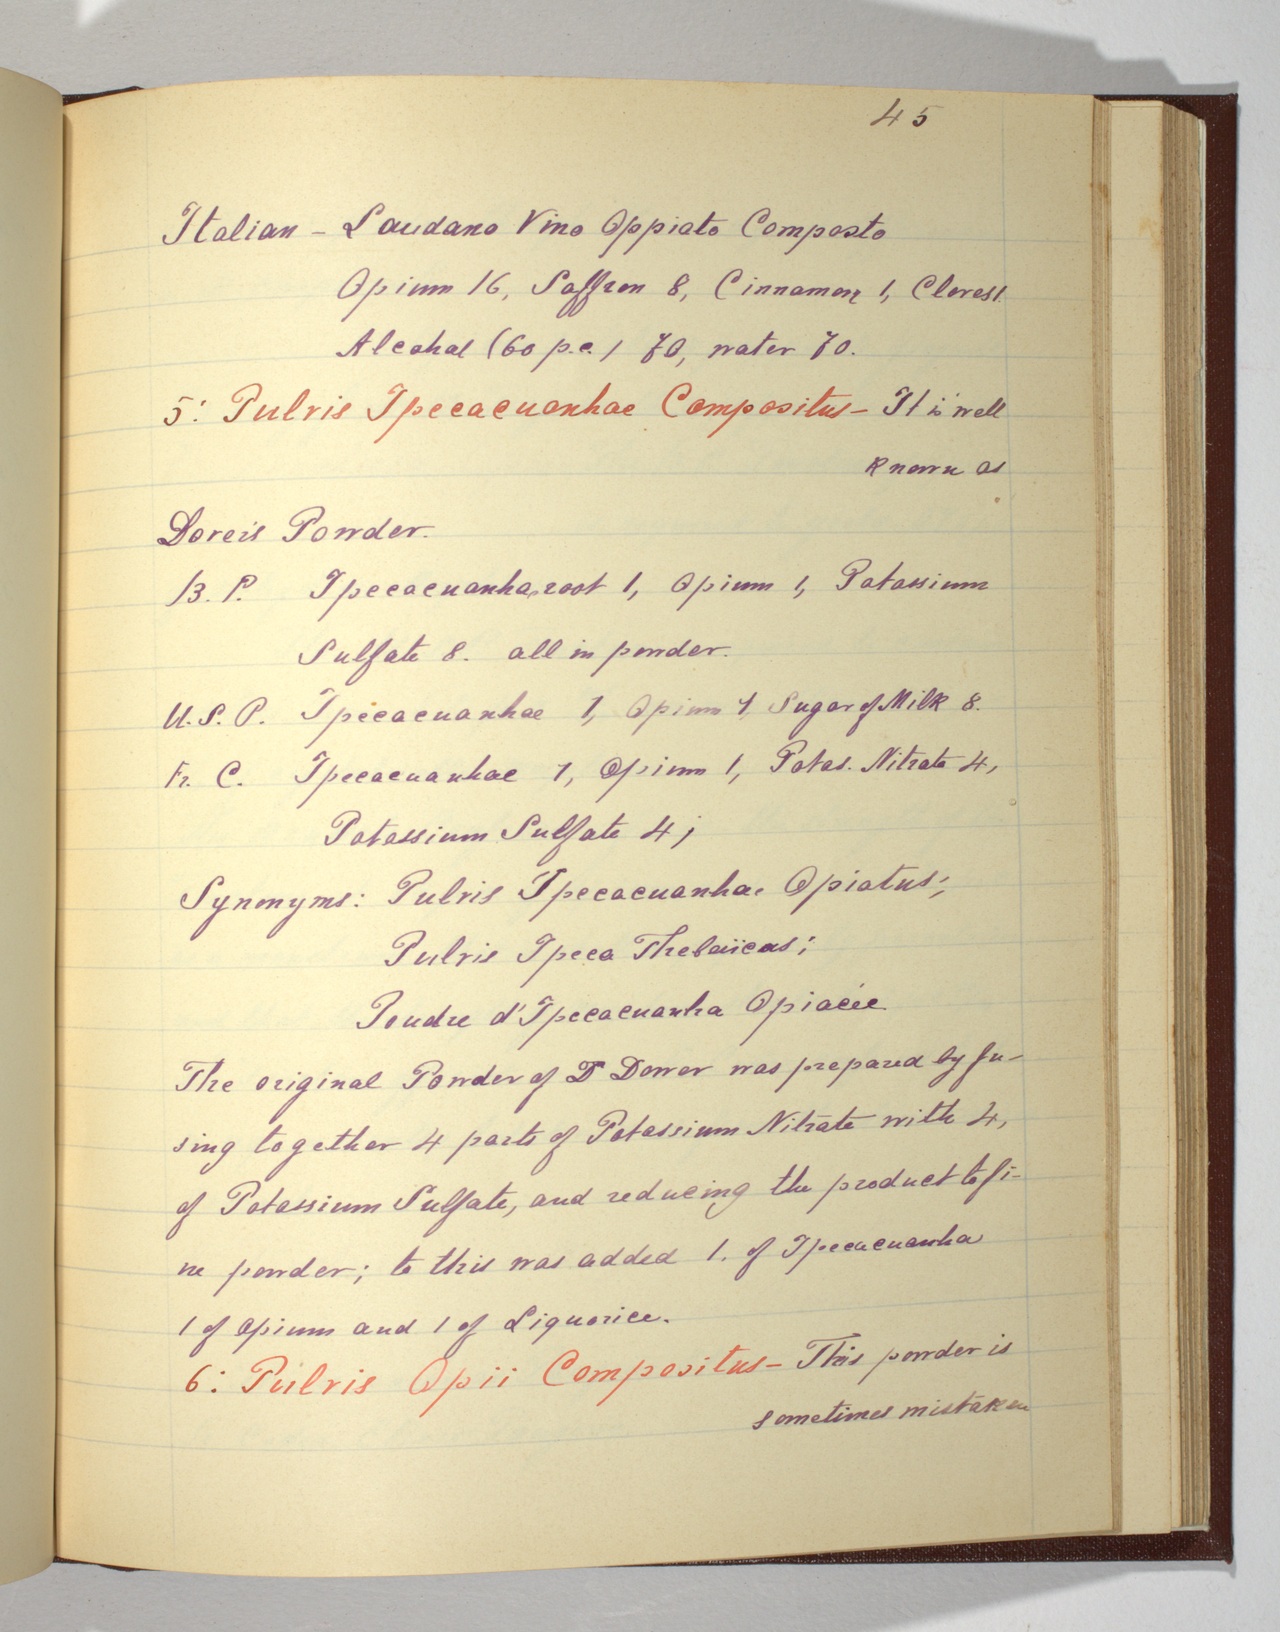 45
Italian – Laudano Vino Oppiato Composto
Opium 16, Saffron 8, Cinnamon 1, Cloves 1.
Alcohol (60 p.c.) 70, water 70.
5: Pulvis Ipecacuanhae Compositus – It is well
known as
Dover's Powder.
B. P. Ipecacuanha root 1, Opium 1, Potassium
Sulfate 8. all in powder.
U. S. P. Ipecacuanhae 1, Opium 1, Sugar of Milk 8.
Fr. C. Ipecacuanhae 1, Opium 1, Potas. Nitrate 4,
Potassium Sulfate 4;
Synonyms: Pulvis Ipecacuanhae Opiatus;
Pulvis Ipeca Thebaïcus;
Poudre d'Ipecacuanha Opiacée
The original Powder of D Dower was prepared by fu-
sing together 4 parts of Potassium Nitrate with 4,
of Potassium Sulfate, and reducing the product to fi-
ne powder; to this was added 1. of Ipecacuanha
1 of Opium and 1 of Liquorice.
6: Pulvis Opii Compositus – This powder is
sometimes mistaken